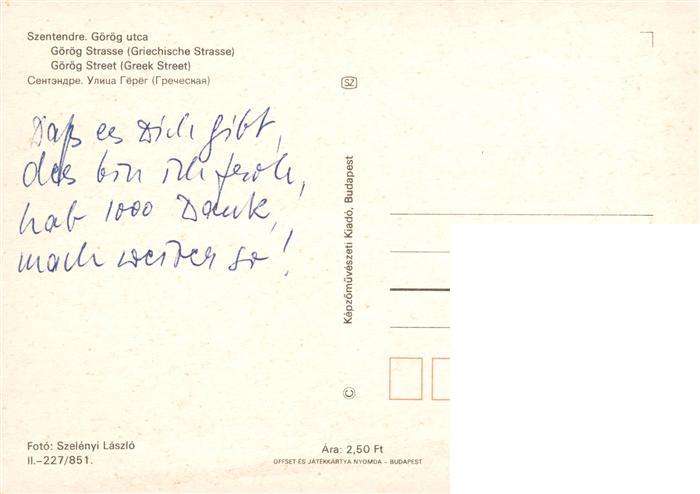 Szentendre. Görög utca
Görög Strasse (Griechische Strasse)
Görög Street (Greek Street)
Сентэндре. Улица Гёрёг (Греческая)
SZ
Daß es Dich gibt,
das bin ich froh,
hab 1000 Dank,
mach weiter so!
Képzőművészeti Kiadó, Budapest
©
Fotó: Szelényi László
II.–227/851.
Ára: 2,50 Ft
OFFSET-ÉS JÁTÉKKÁRTYA NYOMDA – BUDAPEST